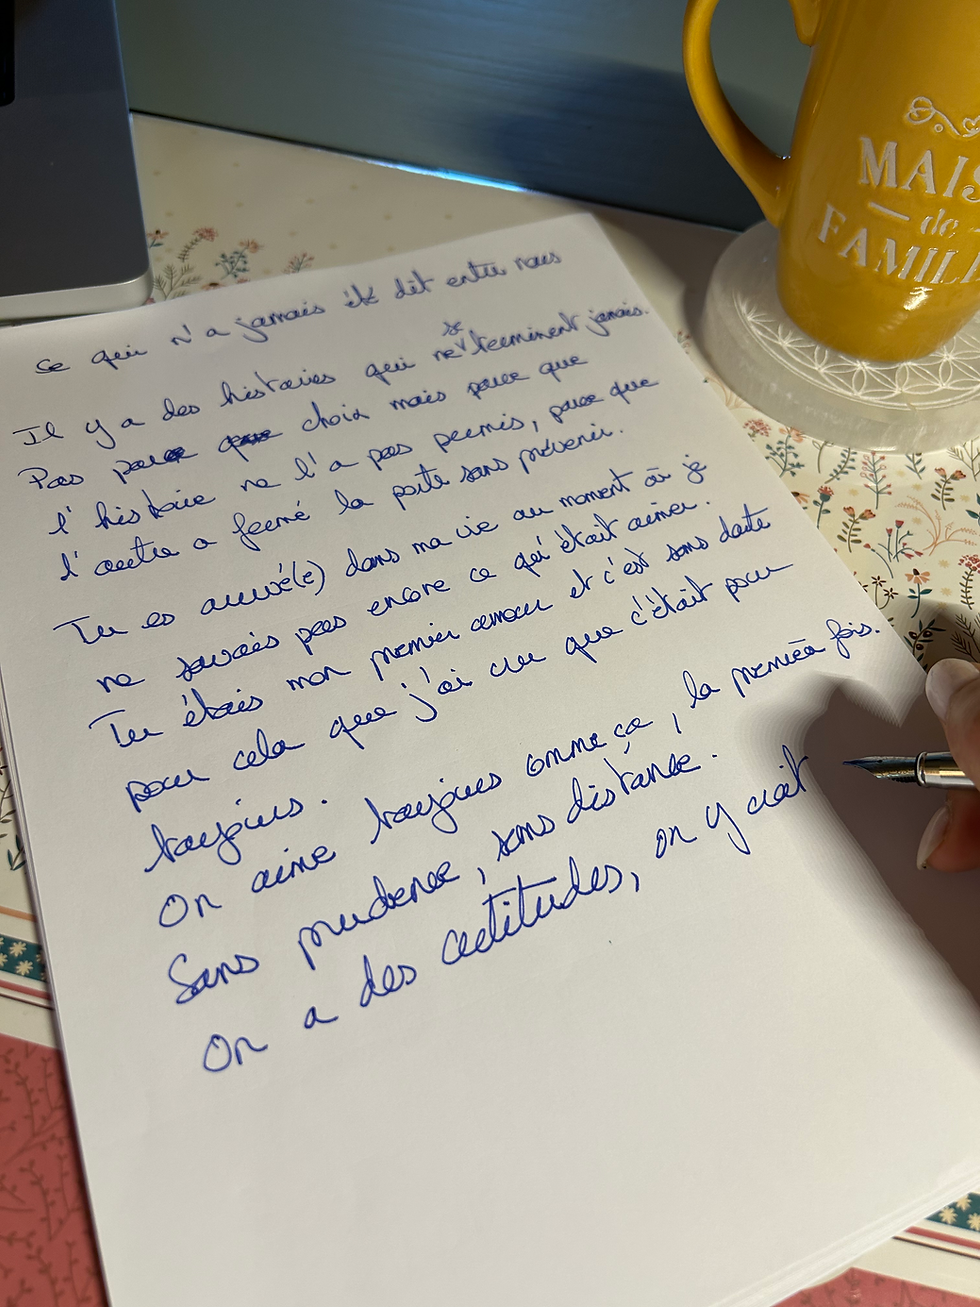 Ce qui n'a jamais été dit entre nous
Il y a des histoires qui ne se terminent jamais.
Pas par choix mais parce que
l'histoire ne l'a pas permis, parce que
l'autre a fermé la porte sans prévenir.
Tu es arrivé(e) dans ma vie au moment où je
ne savais pas encore ce qu'était aimer.
Tu étais mon premier amour et c'est sans doute
pour cela que j'ai cru que c'était pour
toujours.
On aime toujours comme ça, la première fois.
Sans prudence, sans distance.
On a des certitudes, on y croit
MAIS
de
FAMIL